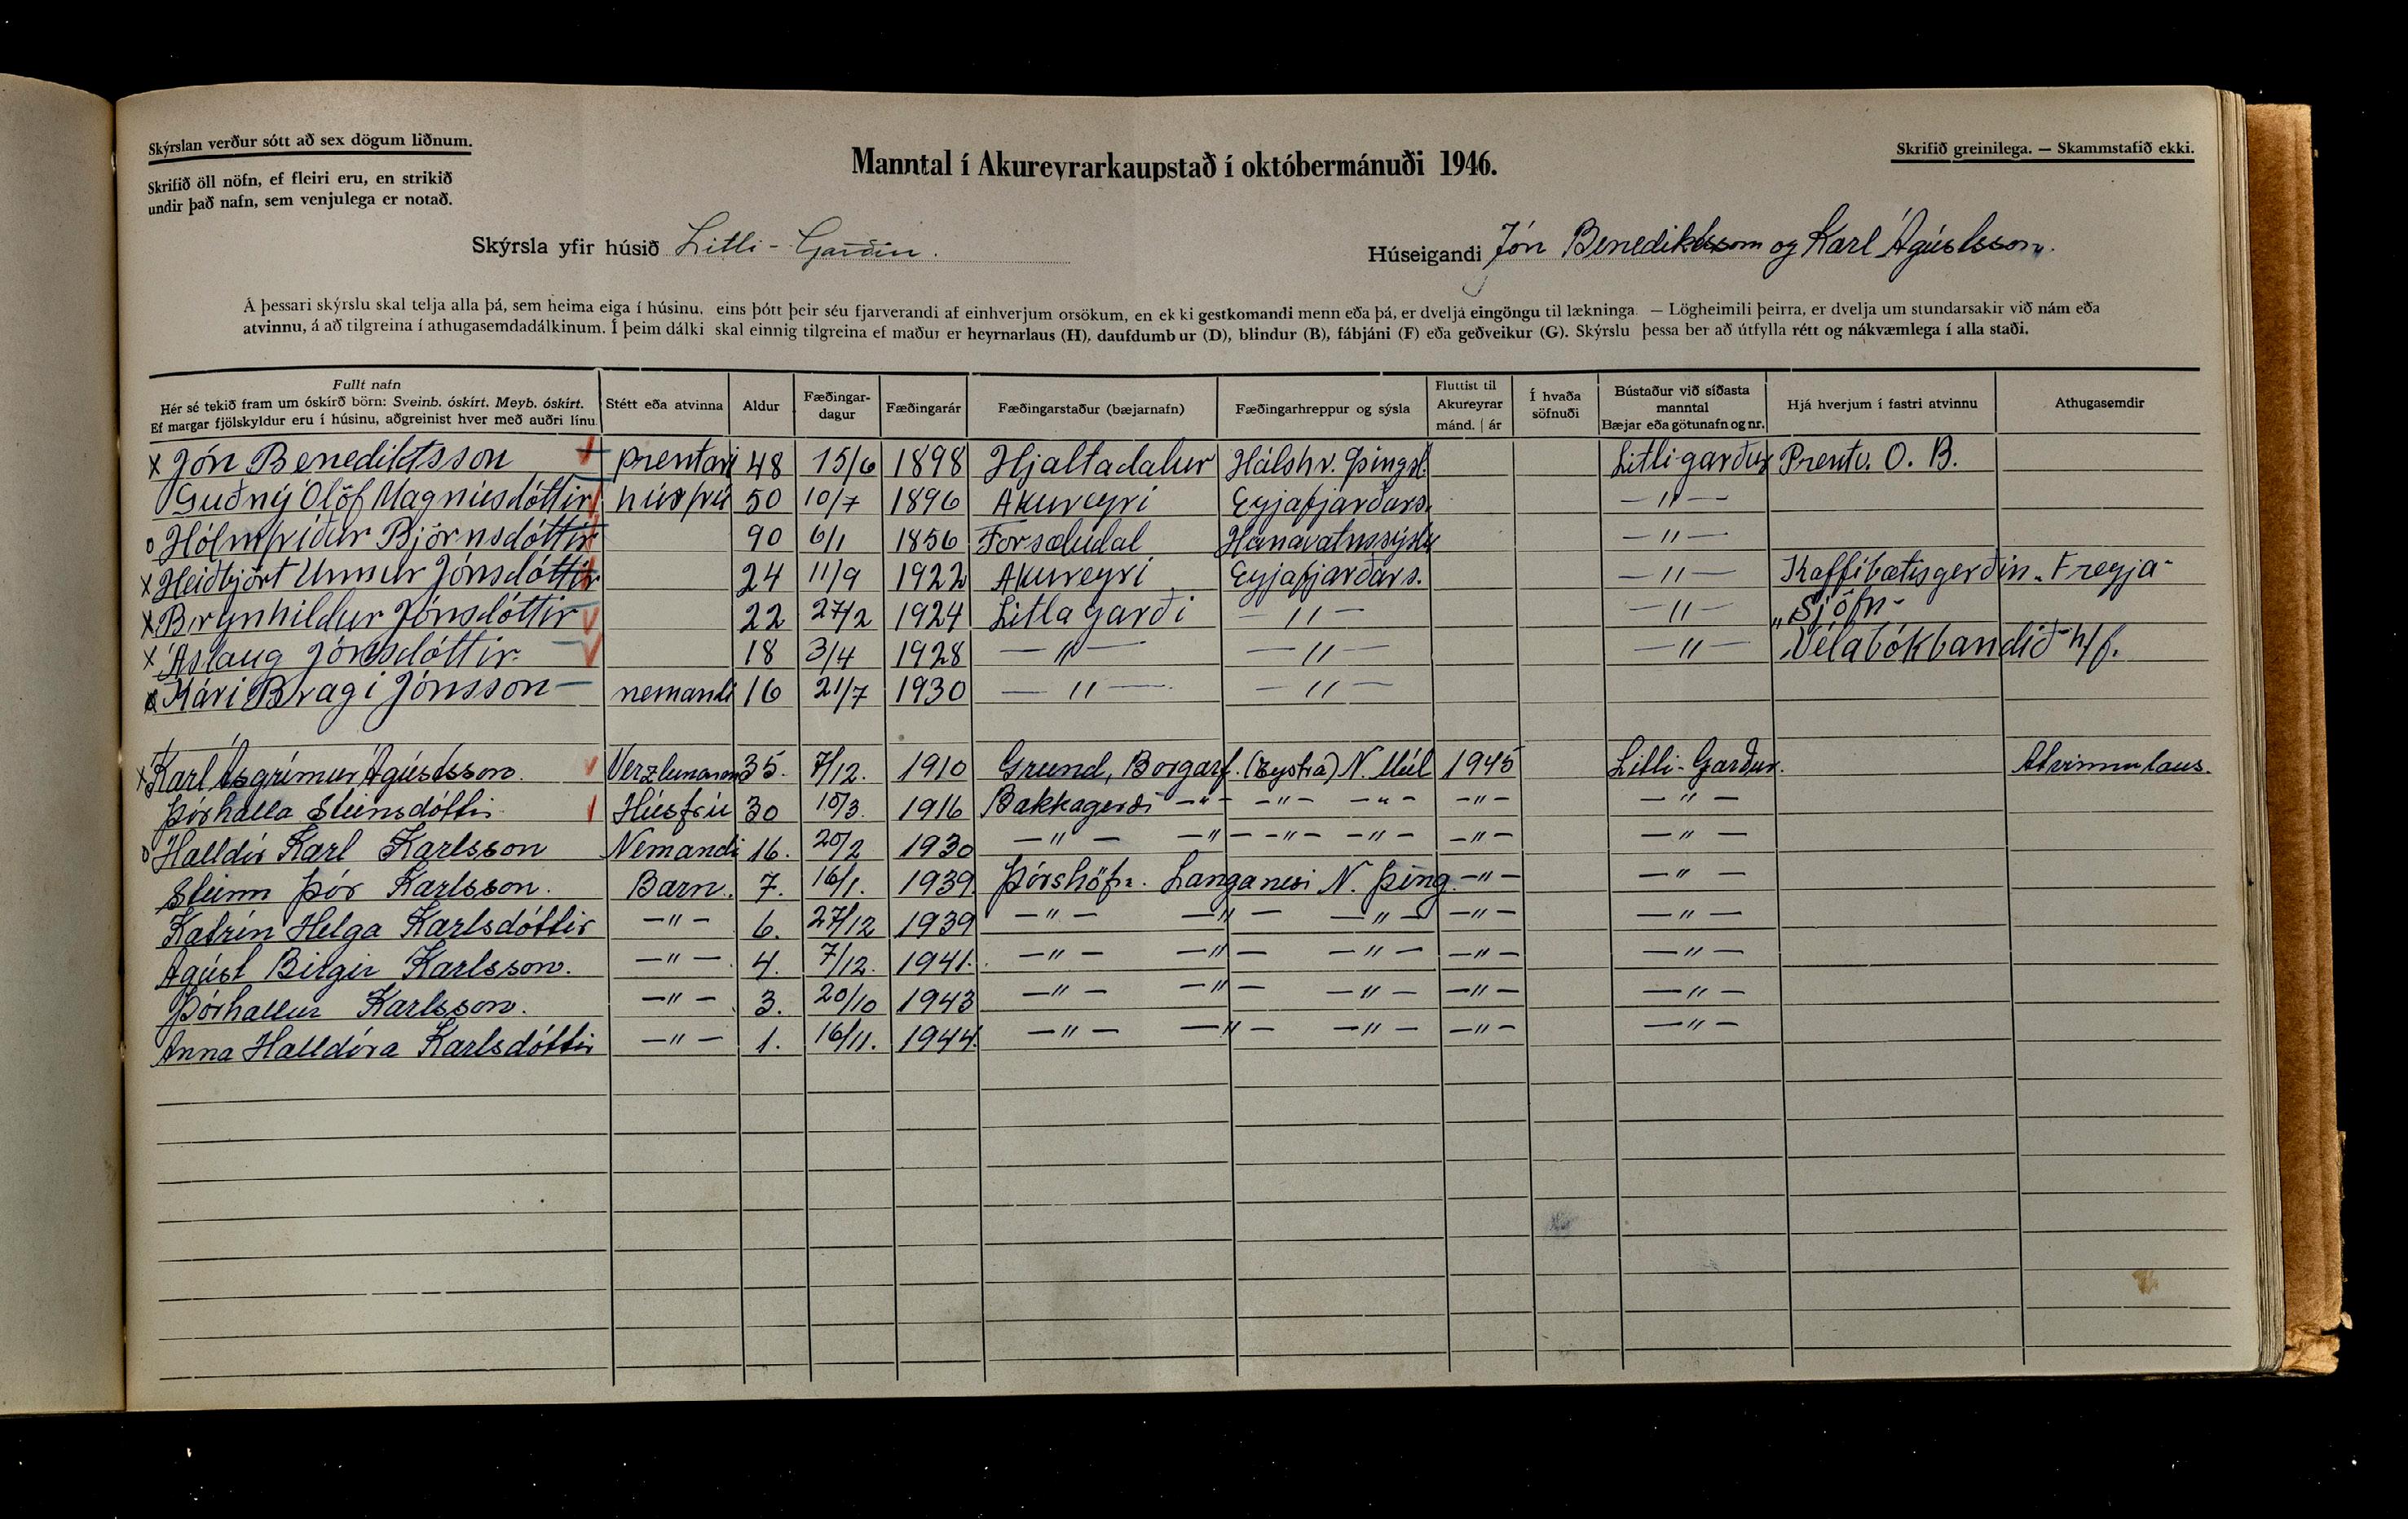 Skýrslan verður sótt að sex dögum liðnum.
Skrifið öll nöfn, ef fleiri eru, en strikið
undir það nafn, sem venjulega er notað.
Manntal í Akureyrarkaupstað í októbermánuði 1946.
Skrifið greinilega. — Skammstafið ekki.
Skýrsla yfir húsið Litli-Garðin.
Húseigandi Jón Benediktsson og Karl Ágústsson.
Á þessari skýrslu skal telja alla þá, sem heima eiga í húsinu, eins þótt þeir séu fjarverandi af einhverjum orsökum, en ekki gestkomandi menn eða þá, er dvelja eingöngu til lækninga. — Lögheimili þeirra, er dvelja um stundarsakir við nám eða
atvinnu, á að tilgreina í athugasemdadálkinum. Í þeim dálki skal einnig tilgreina ef maður er heyrnarlaus (H), daufdumbur (D), blindur (B), fábjáni (F) eða geðveikur (G). Skýrslu þessa ber að útfylla rétt og nákvæmlega í alla staði.
Fullt nafn
Hér sé tekið fram um óskírð börn: Sveinb. óskírt. Meyb. óskírt.
Ef margar fjölskyldur eru í húsinu, aðgreinist hver með auðri línu
Stétt eða atvinna
Aldur
Fæðingar-
dagur
Fæðingarár
Fæðingarstaður (bæjarnafn)
Fæðingarhreppur og sýsla
Fluttist til
Akureyrar
mánd. | ár
Í hvaða
söfnuði
Bústaður við síðasta
manntal
Bæjar eða götunafn og nr.
Hjá hverjum í fastri atvinnu
Athugasemdir
x Jón Benediktsson prentari 48 15/6 1898 Hjaltadalur Hálshr. Þingsl. Litligarður Prentv. O. B.
Guðný Ólöf Magnúsdóttir húsfrú 50 10/7 1896 Akureyri Eyjafjarðars. —"—
o Hólmfríður Björnsdóttir 90 6/1 1856 Forsæludal Húnavatnssýslu —"—
x Heiðbjört Unnur Jónsdóttir 24 11/9 1922 Akureyri Eyjafjarðars. —"— Kaffibætisgerðin "Freyja"
x Brynhildur Jónsdóttir 22 27/2 1924 Litlagarði —"— —"— "Sjöfn"
x Áslaug Jónsdóttir 18 3/4 1928 —"— —"— —"— Vélabókbandið h/f.
Kári Bragi Jónsson nemandi 16 21/7 1930 —"— —"—
x Karl Ásgrímur Ágústsson. Verzlunarm 35. 7/12. 1910 Grund, Borgarf. (Eystra) N. Múl 1945 Litli-Garður. Atvinnulaus.
Þórhalla Steinsdóttir Húsfrú 30 10/3. 1916 Bakkagerði —"— —"— —"— —"— —"—
o Halldór Karl Karlsson Nemandi 16. 20/2 1930 —"— —"— —"— —"— —"— —"—
Steinn Þór Karlsson. Barn. 7. 16/1. 1939 Þórshöfn. Langanesi N. Þing. —"— —"—
Katrín Helga Karlsdóttir —"— 6. 27/12 1939 —"— —"— —"— —"— —"—
Ágúst Birgir Karlsson. —"— 4. 7/12. 1941. —"— —"— —"— —"— —"—
Þórhallur Karlsson. —"— 3. 20/10 1943 —"— —"— —"— —"— —"—
Anna Halldóra Karlsdóttir —"— 1. 16/11. 1944. —"— —"— —"— —"— —"—